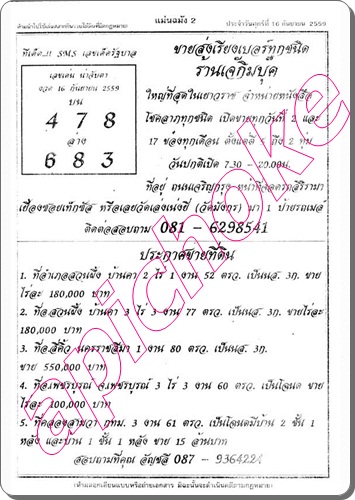 ห้ามนำไปใช้เล่นสลากกินแบ่งที่ผิดกฎหมาย
แม่นฉมัง 2
ประจำวันศุกร์ที่ 16 กันยายน 2559
ทีเด็ด..!! SMS เลขเด็ดรัฐบาล
เลขเด่น น่าจับตา
งวด 16 กันยายน 2559
บน
4 7 8
ล่าง
6 8 3
ขายส่งเรียงเบอร์ทุกชนิด
ร้านเจ๊กิมบุ๊ค
ใหญ่ที่สุดในเยาวราช จำหน่ายหนังสือ
โชคลาภทุกชนิด เปิดขายทุกวันที่ 2 และ
17 ของทุกเดือน ตั้งแต่ตี 5 ถึง 2 ทุ่ม
วันปกติเปิด 7.30 - 20.00น.
ที่อยู่ ถนนเจริญกรุง หน้าที่จอดรถสิริรามา
เยื้องซอยเท็กซัส หรือเลยวัดเล่งเน่ยยี่ (วัดมังกร) มา 1 ป้ายรถเมล์
ติดต่อสอบถาม 081 - 6298541
ประกาศขายที่ดิน
1. ที่อำเภอสวนผึ้ง บ้านคา 2 ไร่ 1 งาน 52 ตรว. เป็นนส. 3ก. ขาย
ไร่ละ 180,000 บาท
2. ที่อ.สวนผึ้ง บ้านคา 3 ไร่ 3 งาน 77 ตรว. เป็นนส. 3ก. ขายไร่ละ
180,000 บาท
3. ที่อ.สีคิ้ว นครราชสีมา 1 งาน 80 ตรว. เป็นนส. 3ก.
ขาย 550,000 บาท
4. ที่อ.เพชรบูรณ์ จ.เพชรบูรณ์ 3 ไร่ 3 งาน 60 ตรว. เป็นโฉนด ขาย
ไร่ละ 100,000 บาท
5. ที่คลองสามวา กทม. 3 งาน 61 ตรว. เป็นโฉนดมีบ้าน 2 ชั้น 1
หลัง และบ้าน 1 ชั้น 1 หลัง ขาย 15 ล้านบาท
สอบถามที่คุณ อัญชลี 087 - 9364224
(ห้ามลอกเลียนแบบหรือถ่ายเอกสาร มิฉะนั้นจะดำเนินคดีตามกฎหมาย)
apichoke